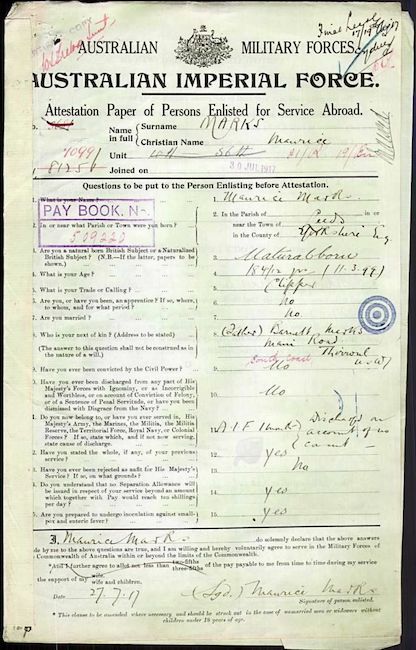 AUSTRALIAN MILITARY FORCES.
AUSTRALIAN IMPERIAL FORCE.
Attestation Paper of Persons Enlisted for Service Abroad.
Name in full
Surname MARKS
Christian Name Maurice
Unit
Joined on 30 JUL 1917
Questions to be put to the Person Enlisting before Attestation.
1. What is your Name? 1. Maurice Marks
PAY BOOK. No.
2. In or near what Parish or Town were you born? 2. In the Parish of in or
near the Town of Leeds
in the County of Yorkshire Eng
3. Are you a natural born British Subject or a Naturalized
British Subject? (N.B.—If the latter, papers to be
shown.) 3. Natural born
4. What is your Age? 4.
5. What is your Trade or Calling? 5. Clipper
6. Are you, or have you been, an apprentice? If so, where,
to whom, and for what period? 6. No
7. Are you married? 7. No
8. Who is your next of kin? (Address to be stated) 8. (Father) Barnett Marks
Main Road,
South Coast Thirroul N.S.W
(The answer to this question shall not be construed as in
the nature of a will.)
9. Have you ever been convicted by the Civil Power? 9. No
10. Have you ever been discharged from any part of His
Majesty's Forces with Ignominy, or as Incorrigible
and Worthless, or on account of Conviction of Felony,
or of a Sentence of Penal Servitude, or have you been
Dismissed with Disgrace from the Navy? 10. No
11. Do you now belong to, or have you ever served in, His
Majesty's Army, the Marines, the Militia, the Militia
Reserve, the Territorial Force, Royal Navy, or Colonial
Forces? If so, state which, and if not now serving,
state cause of discharge. 11. A.I.F. Discharged on
account of
12. Have you stated the whole, if any, of your previous
service? 12. Yes
13. Have you ever been rejected as unfit for His Majesty's
Service? If so, on what grounds? 13. No
14. Do you understand that no Separation Allowance will
be issued in respect of your service beyond an amount
which together with Pay would reach ten shillings
per day? 14. yes
15. Are you prepared to undergo inoculation against small-
pox and enteric fever? 15. yes
I, Maurice Marks do solemnly declare that the above answers
made by me to the above questions are true, and I am willing and hereby voluntarily agree to serve in the Military Forces of
Commonwealth of Australia within or beyond the limits of the Commonwealth.
*And I further agree to allot not less than two-fifths three-fifths of the pay payable to me from time to time during my service
the support of my wife. wife and children.
27.7.17 (Sgd.) Maurice Marks
Signature of person enlisted.
* This clause to be amended where necessary and should be struck out in the case of unmarried men or widowers without
children under 18 years of age.